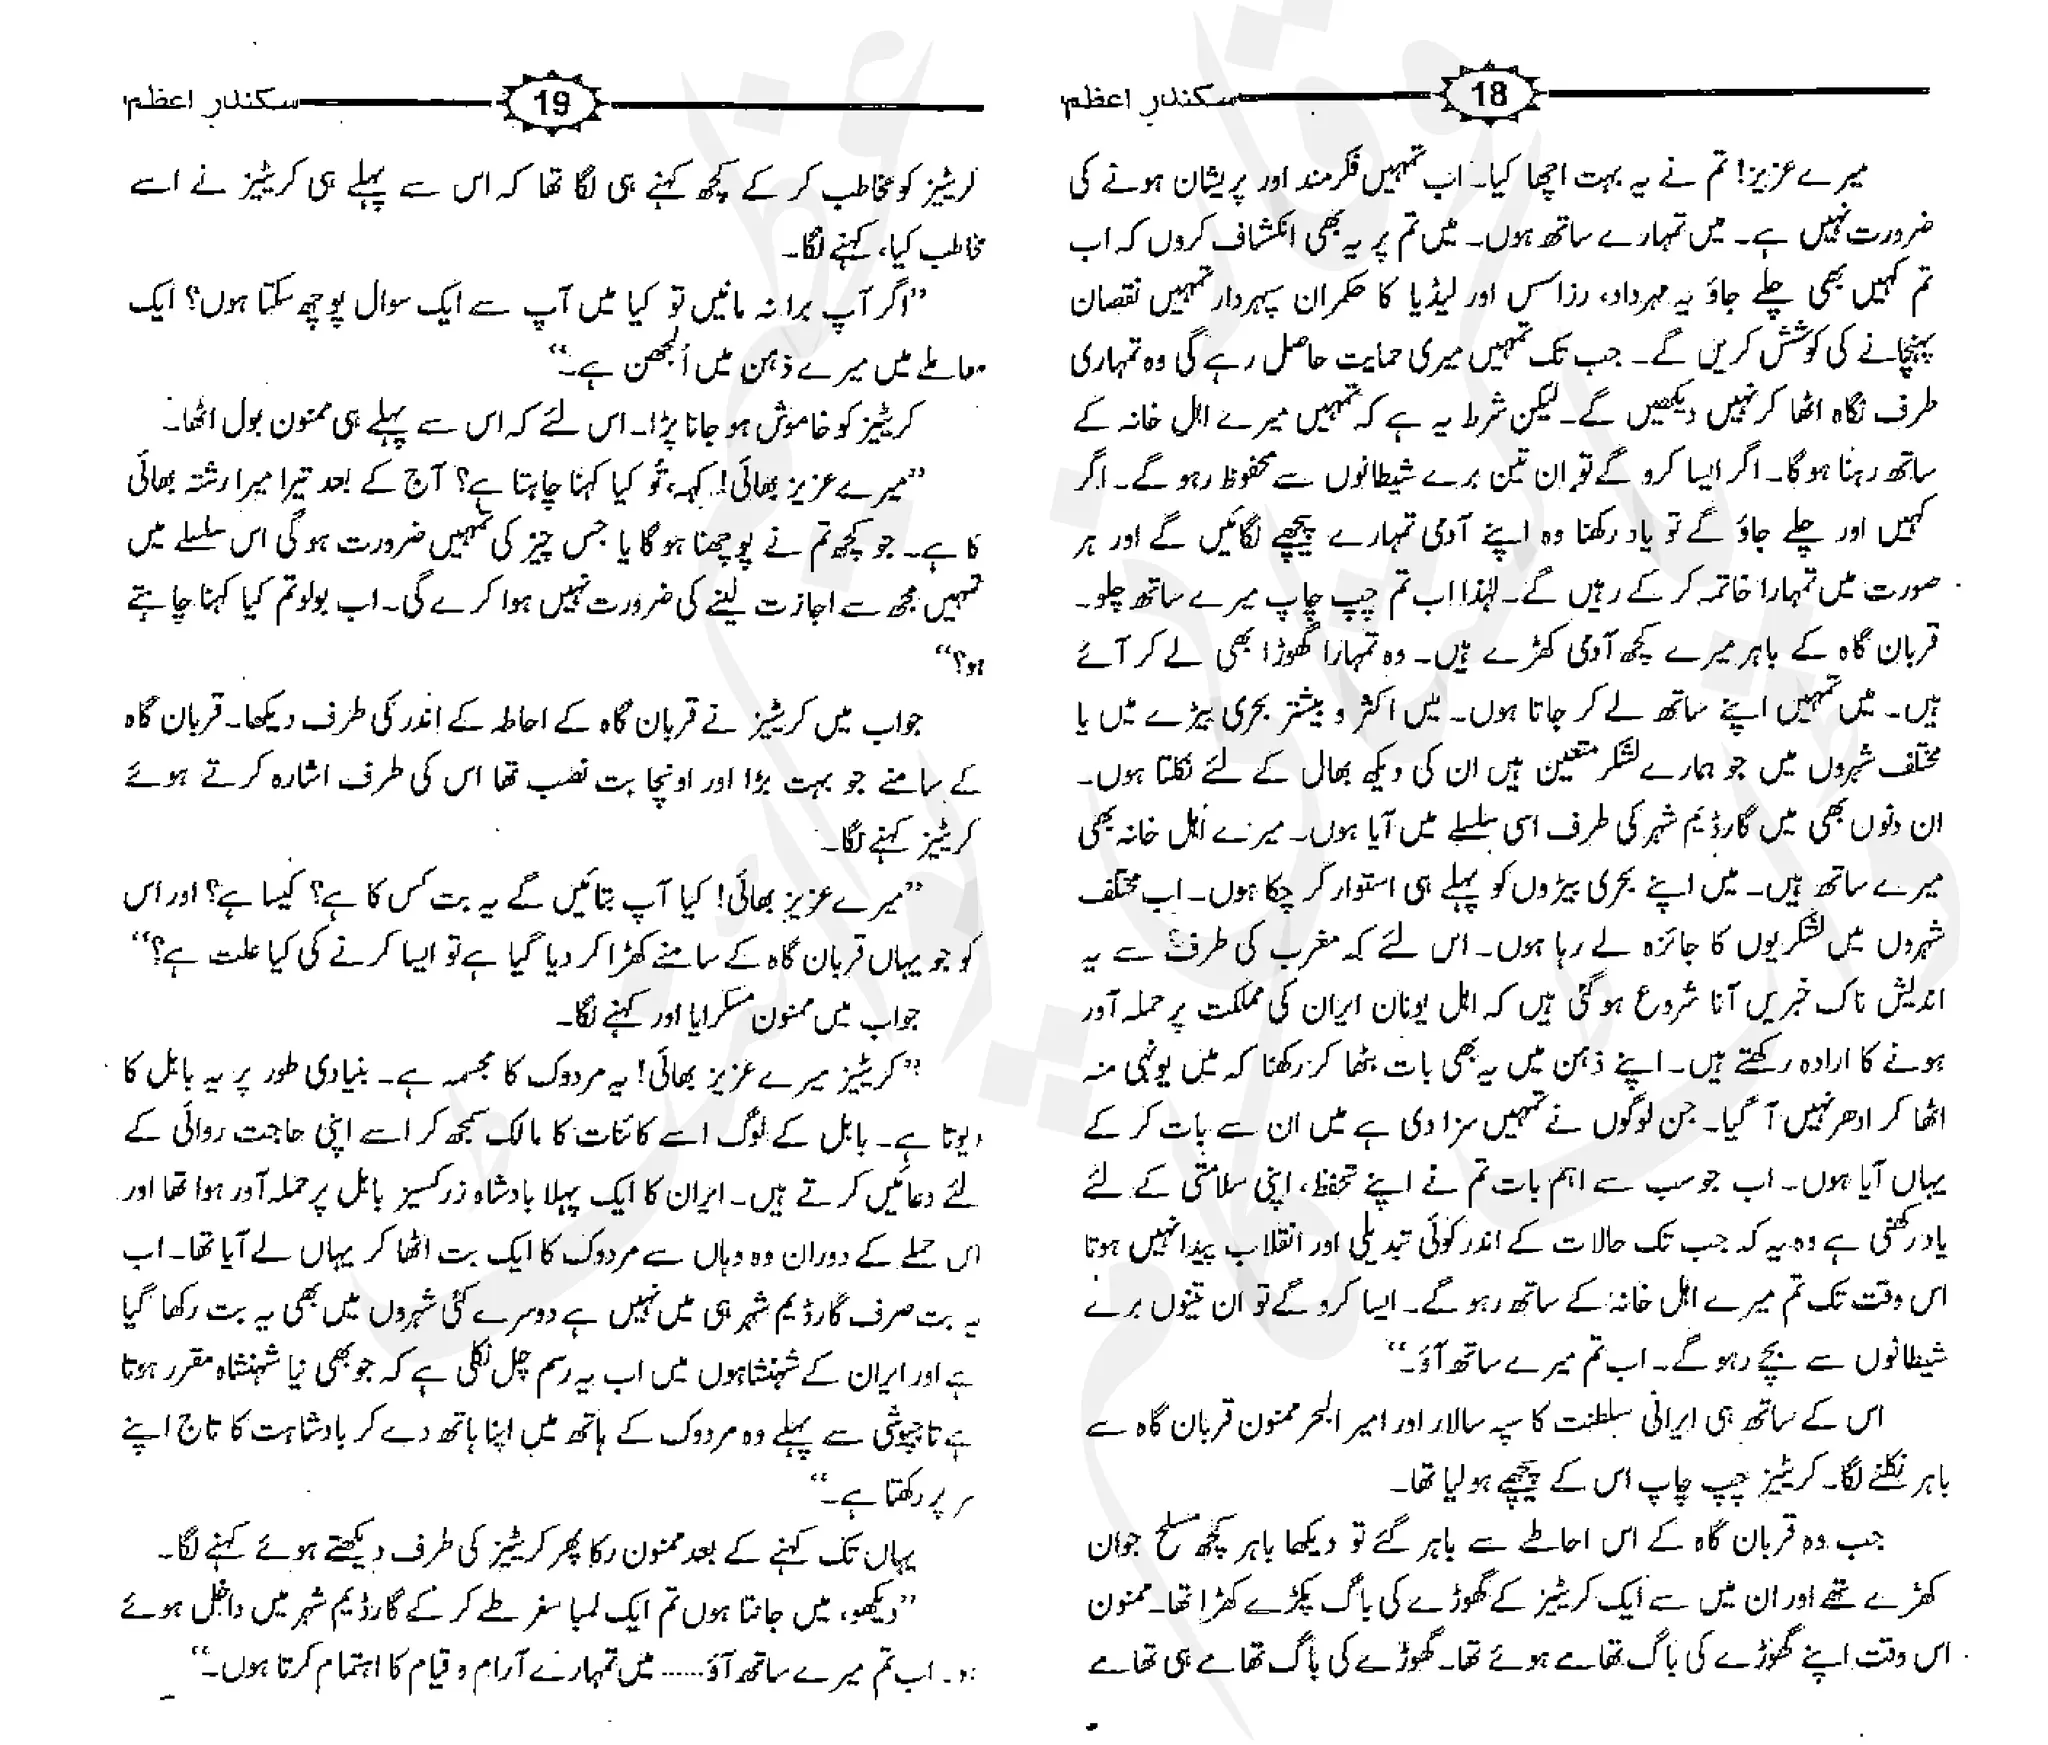 سکندرِ اعظم 18
میرے عزیز! تم نے یہ بہت اچھا کیا۔ اب تمہیں فکرمند اور پریشان ہونے کی
ضرورت نہیں ہے۔ میں تمہارے ساتھ ہوں۔ میں تم پر یہ بھی انکشاف کروں کہ اب
تم کہیں بھی چلے جاؤ یہ مہرداد، رزاس اور لیڈیا کا حکمران سپہردار تمہیں نقصان
پہنچانے کی کوشش کریں گے۔ جب تک تمہیں میری حمایت حاصل رہے گی وہ تمہاری
طرف نگاہ اٹھا کر نہیں دیکھیں گے۔ لیکن شرط یہ ہے کہ تمہیں میرے اہل خانہ کے
ساتھ رہنا ہوگا۔ اگر ایسا کرو گے تو ان تین برے شیطانوں سے محفوظ رہو گے۔ اگر
کہیں اور چلے جاؤ گے تو یاد رکھنا وہ اپنے آدمی تمہارے پیچھے لگائیں گے اور ہر
صورت میں تمہارا خاتمہ کر کے رہیں گے۔ لہٰذا اب تم چپ چاپ میرے ساتھ چلو۔
قربان گاہ کے باہر میرے کچھ آدمی کھڑے ہیں۔ وہ تمہارا گھوڑا بھی لے کر آئے
ہیں۔ میں تمہیں اپنے ساتھ لے کر جاتا ہوں۔ میں اکثر و بیشتر بحری بیڑے میں یا
مختلف شہروں میں جو ہمارے لشکر متعین ہیں ان کی دیکھ بھال کے لئے نکلتا ہوں۔
ان دنوں بھی میں گارڈیم شہر کی طرف اسی سلسلے میں آیا ہوں۔ میرے اہل خانہ بھی
میرے ساتھ ہیں۔ میں اپنے بحری بیڑوں کو پہلے ہی استوار کر چکا ہوں۔ اب مختلف
شہروں میں لشکریوں کا جائزہ لے رہا ہوں۔ اس لئے کہ مغرب کی طرف سے یہ
اندیش ناک خبریں آنا شروع ہو گئی ہیں کہ اہل یونان ایران کی مملکت پر حملہ آور
ہونے کا ارادہ رکھتے ہیں۔ اپنے ذہن میں یہ بھی بات بٹھا کر رکھنا کہ میں یونہی منہ
اٹھا کر ادھر نہیں آ گیا۔ جن لوگوں نے تمہیں سزا دی ہے میں ان سے بات کر کے
یہاں آیا ہوں۔ اب جو سب سے اہم بات تم نے اپنے تحفظ، اپنی سلامتی کے لئے
یاد رکھنی ہے وہ یہ کہ جب تک حالات کے اندر کوئی تبدیلی اور انقلاب پیدا نہیں ہوتا
اس وقت تک تم میرے اہل خانہ کے ساتھ رہو گے۔ ایسا کرو گے تو ان تینوں برے
شیطانوں سے بچے رہو گے۔ اب تم میرے ساتھ آؤ۔“
اس کے ساتھ ہی ایرانی سلطنت کا سپہ سالار اور امیر البحر ممنون قربان گاہ سے
باہر نکلنے لگا۔ کریٹیز چپ چاپ اس کے پیچھے ہو لیا تھا۔
جب وہ قربان گاہ کے اس احاطے سے باہر گئے تو دیکھا باہر کچھ مسلح جوان
کھڑے تھے اور ان میں سے ایک کریٹیز کے گھوڑے کی باگ پکڑے کھڑا تھا۔ ممنون
اس وقت اپنے گھوڑے کی باگ تھامے ہوئے تھا۔ گھوڑے کی باگ تھامے ہی تھامے
سکندرِ اعظم 19
کریٹیز کو مخاطب کر کے کچھ کہنے ہی لگا تھا کہ اس سے پہلے ہی کریٹیز نے اسے
مخاطب کیا، کہنے لگا۔
”اگر آپ برا نہ مانیں تو کیا میں آپ سے ایک سوال پوچھ سکتا ہوں؟ ایک
معاملے میں میرے ذہن میں اُلجھن ہے۔“
کریٹیز کو خاموش ہو جانا پڑا۔ اس لئے کہ اس سے پہلے ہی ممنون بول اٹھا۔
”میرے عزیز بھائی! کہہ، تُو کیا کہنا چاہتا ہے؟ آج کے بعد تیرا میرا رشتہ بھائی
کا ہے۔ جو کچھ تم نے پوچھنا ہو گا یا جس چیز کی تمہیں ضرورت ہو گی اس سلسلے میں
تمہیں مجھ سے اجازت لینے کی ضرورت نہیں ہوا کرے گی۔ اب بولو تم کیا کہنا چاہتے
ہو؟“
جواب میں کریٹیز نے قربان گاہ کے احاطہ کے اندر کی طرف دیکھا۔ قربان گاہ
کے سامنے جو بہت بڑا اور اونچا بت نصب تھا اس کی طرف اشارہ کرتے ہوئے
کریٹیز کہنے لگا۔
”میرے عزیز بھائی! کیا آپ بتائیں گے یہ بت کس کا ہے؟ کیسا ہے؟ اور اس
کو جو یہاں قربان گاہ کے سامنے کھڑا کر دیا گیا ہے تو ایسا کرنے کی کیا علت ہے؟“
جواب میں ممنون مسکرایا اور کہنے لگا۔
”کریٹیز میرے عزیز بھائی! یہ مردوک کا مجسمہ ہے۔ بنیادی طور پر یہ بابل کا
دیوتا ہے۔ بابل کے لوگ اسے کائنات کا مالک سمجھ کر اسے اپنی حاجت روائی کے
لئے دعائیں کرتے ہیں۔ ایران کا ایک پہلا بادشاہ زرکسیز بابل پر حملہ آور ہوا تھا اور
اس حملے کے دوران وہ وہاں سے مردوک کا ایک بت اٹھا کر یہاں لے آیا تھا۔ اب
یہ بت صرف گارڈیم شہر ہی میں نہیں ہے دوسرے کئی شہروں میں بھی یہ بت رکھا گیا
ہے اور ایران کے شہنشاہوں میں اب یہ رسم چل نکلی ہے کہ جو بھی نیا شہنشاہ مقرر ہوتا
ہے تاجپوشی سے پہلے وہ مردوک کے ہاتھ میں اپنا ہاتھ دے کر بادشاہت کا تاج اپنے
سر پر رکھتا ہے۔“
یہاں تک کہنے کے بعد ممنون رکا پھر کریٹیز کی طرف دیکھتے ہوئے کہنے لگا۔
”دیکھو، میں جانتا ہوں تم ایک لمبا سفر طے کر کے گارڈیم شہر میں داخل ہوئے
ہو۔ اب تم میرے ساتھ آؤ...... میں تمہارے آرام و قیام کا اہتمام کرتا ہوں۔“